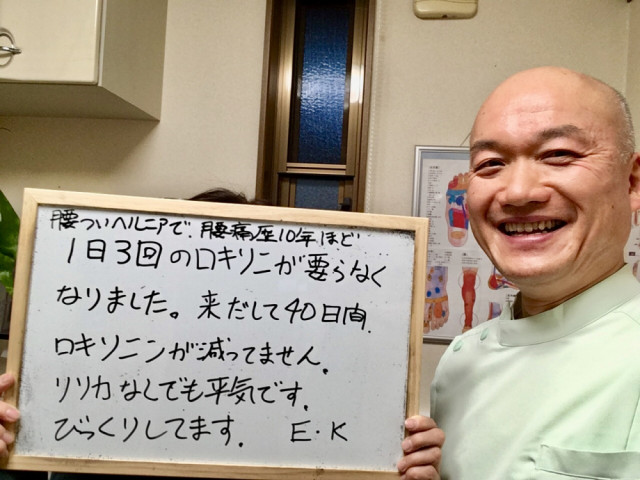 腰ついヘルニアで、腰痛歴10年ほど
1日3回のロキソニンが要らなく
なりました。来だして40日間、
ロキソニンが減ってません。
リリカなしでも平気です。
びっくりしてます。 E・K